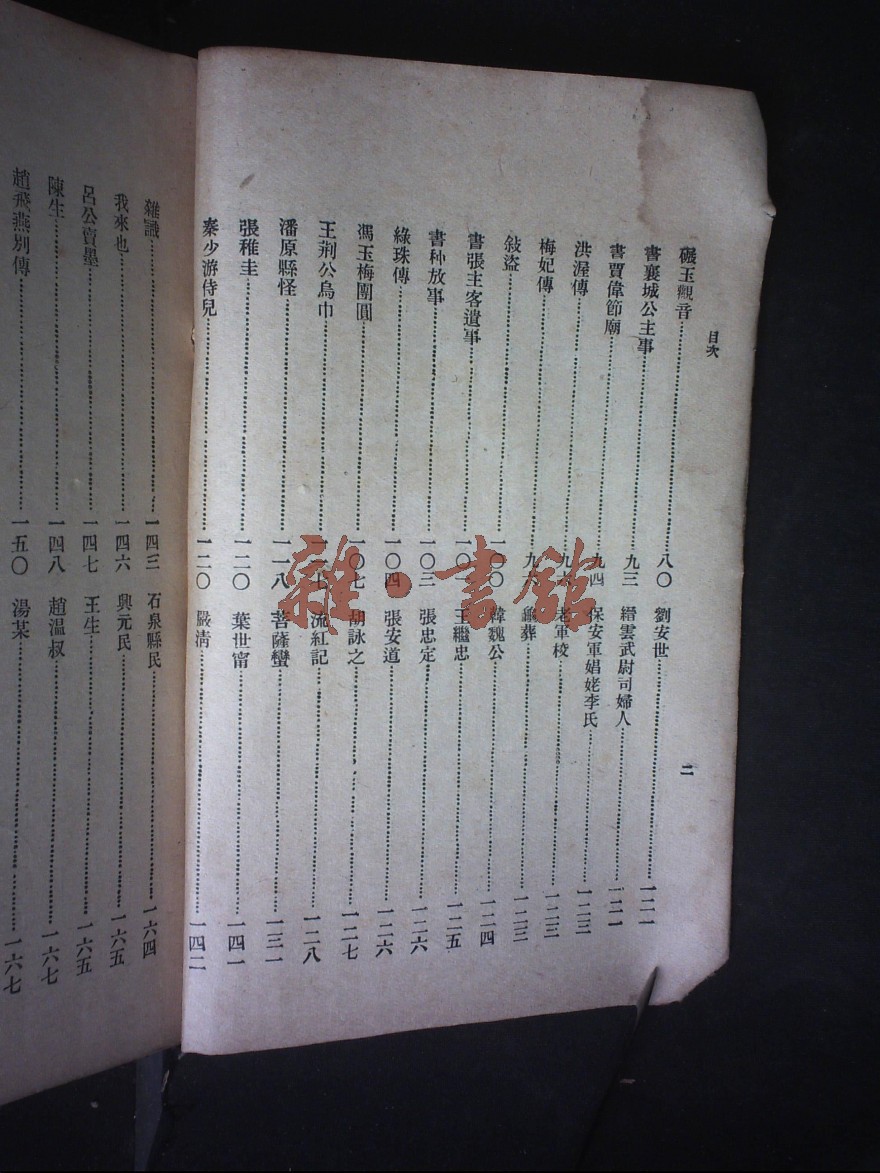 目次
二
碾玉觀音……八〇
書襄城公主事……九三
書賈偉節廟……九四
洪渥傳……九六
梅妃傳……九六
敍盜……一〇〇
書張主客遺事……一〇
書种放事……一〇三
綠珠傳……一〇四
馮玉梅團圓……一〇七
王荊公烏巾……一一七
潘原縣怪……一一八
張稚圭……一二〇
秦少游侍兒……一二〇
劉安世……一二一
縉雲武尉司婦人……一二一
保安軍娼姥李氏……一二三
老軍校……一二三
葬……一二三
韓魏公……一二四
王繼忠……一二五
張忠定……一二六
張安道……一二六
胡詠之……一二七
流紅記……一二八
菩薩蠻……一三一
葉世甯……一四一
嚴清……一四二
雜識……一四三
我來也……一四六
呂公賣墨……一四七
陳生……一四八
趙飛燕別傳……一五〇
石泉縣民……一六四
興元民……一六五
王生……一六五
趙溫叔……一六七
湯某……一六七
雜·書館